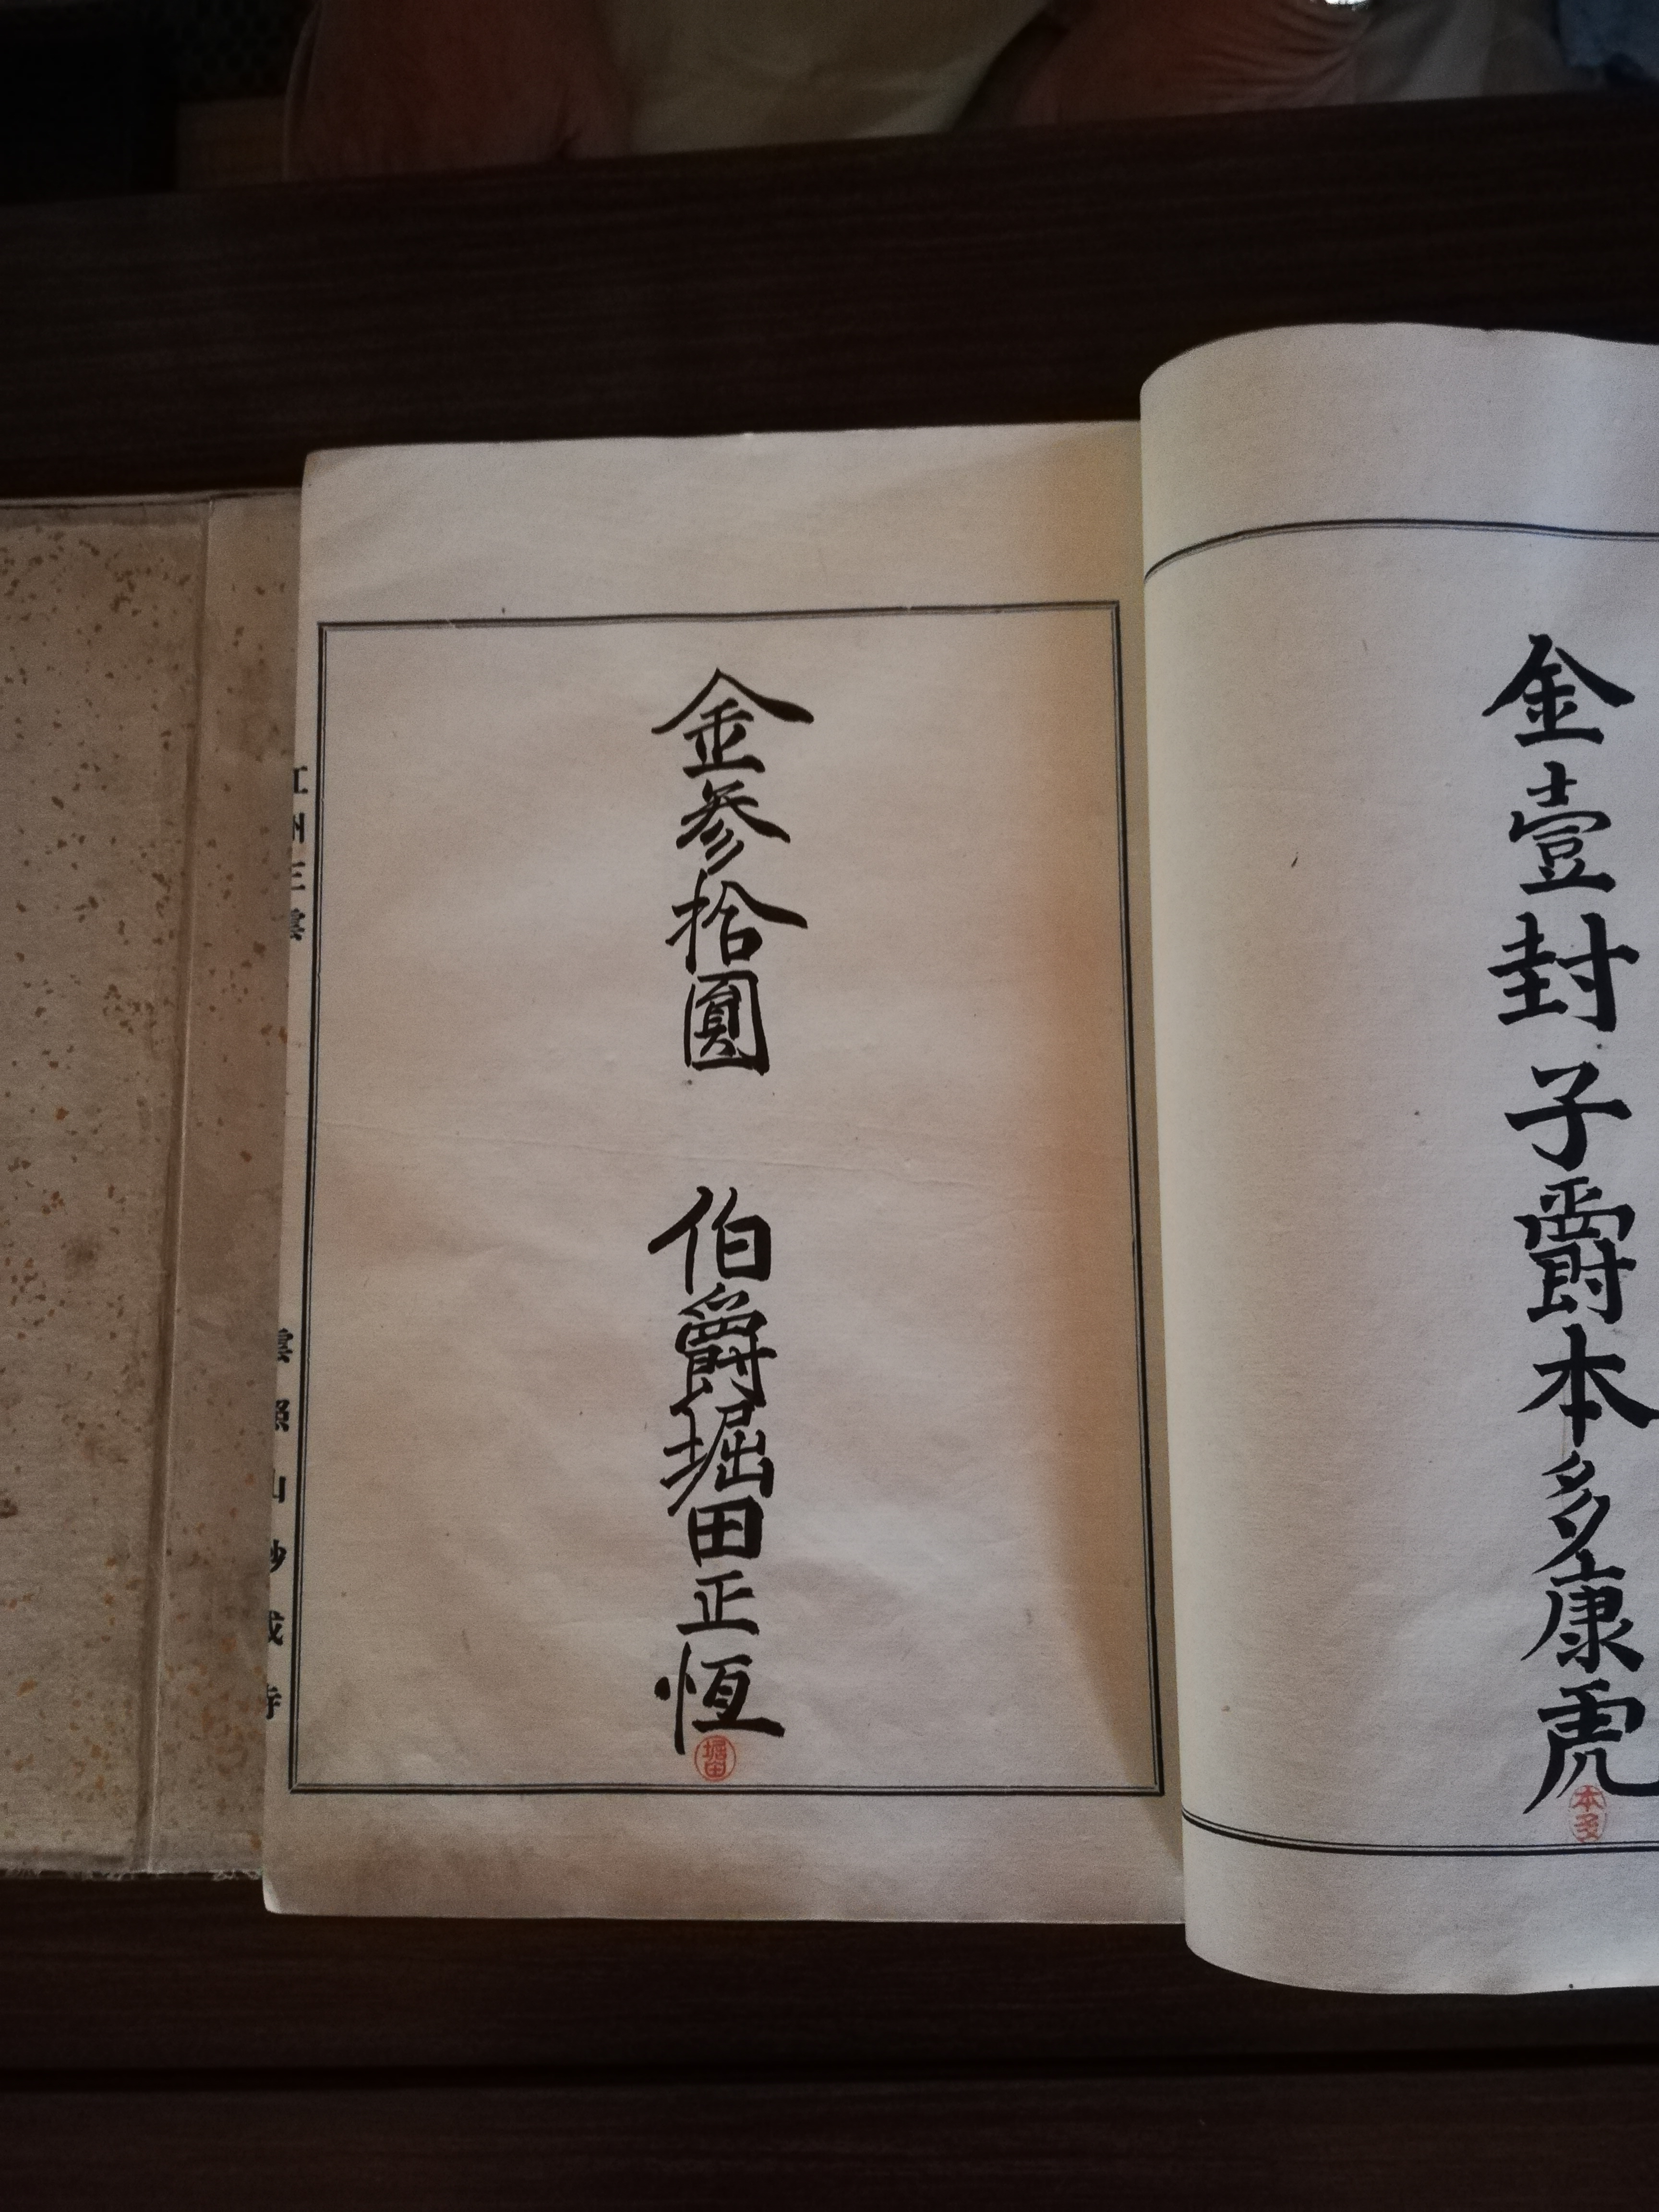 金壹封 子爵本多康虎
本多
金参拾圓 伯爵堀田正恆
堀田
江州三雲 雲照山妙成寺